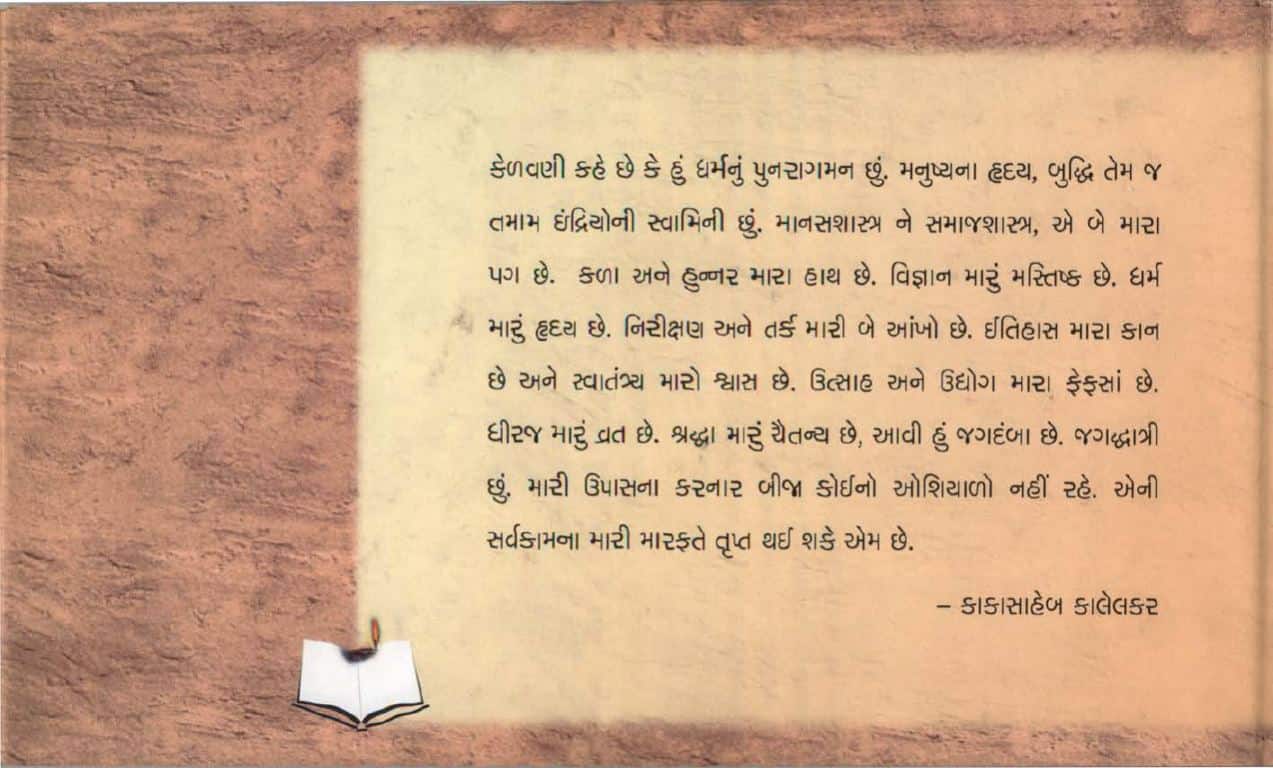 કેળવણી કહે છે કે હું ધર્મનું પુનરાગમન છું. મનુષ્યના હૃદય, બુદ્ધિ તેમ જ
તમામ ઇંદ્રિયોની સ્વામિની છું. માનસશાસ્ત્ર ને સમાજશાસ્ત્ર, એ બે મારા
પગ છે. કળા અને હુન્નર મારા હાથ છે. વિજ્ઞાન મારું મસ્તિષ્ક છે. ધર્મ
મારું હૃદય છે. નિરીક્ષણ અને તર્ક મારી બે આંખો છે. ઈતિહાસ મારા કાન
છે અને સ્વાતંત્ર્ય મારો શ્વાસ છે. ઉત્સાહ અને ઉદ્યોગ મારા ફેફસાં છે.
ધીરજ મારું વ્રત છે. શ્રદ્ધા મારું ચૈતન્ય છે, આવી હું જગદંબા છે. જગદ્ધાત્રી
છું. મારી ઉપાસના કરનાર બીજા કોઈનો ઓશિયાળો નહીં રહે. એની
સર્વકામના મારી મારફતે તૃપ્ત થઈ શકે એમ છે.
– કાકાસાહેબ કાલેલકર